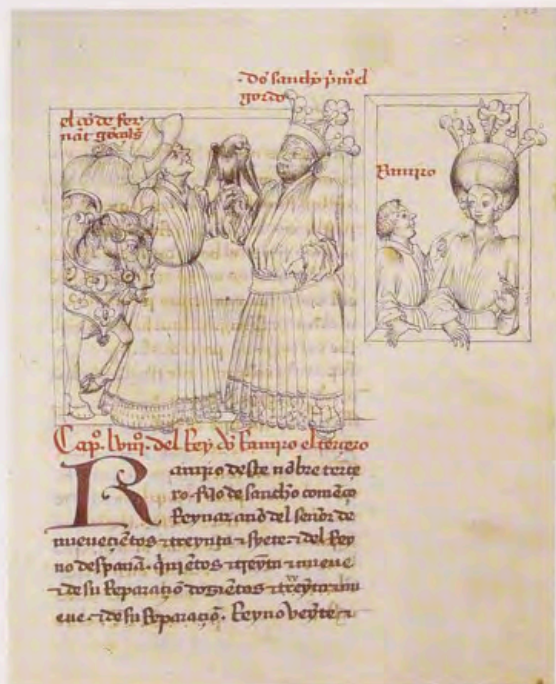 do sancho p̃mo el
gordo
el cõde fer
nãt gõçalš
Ramiro
Cap̊. lviij. del Rey dõ Ramiro el terçero
Ramiro deste nõbre terçe
ro. fijo de sancho começo
Reynar año del señor de
nueueçiẽtos τ treynta τ syete. τ del Rey
no despaña. quiẽtos τ treyta τ nueue
τ de su Reparaçiõ doziẽtos τ treyta τ nu
eue. τ de su Reparaçiõ. Reyno veynte τ